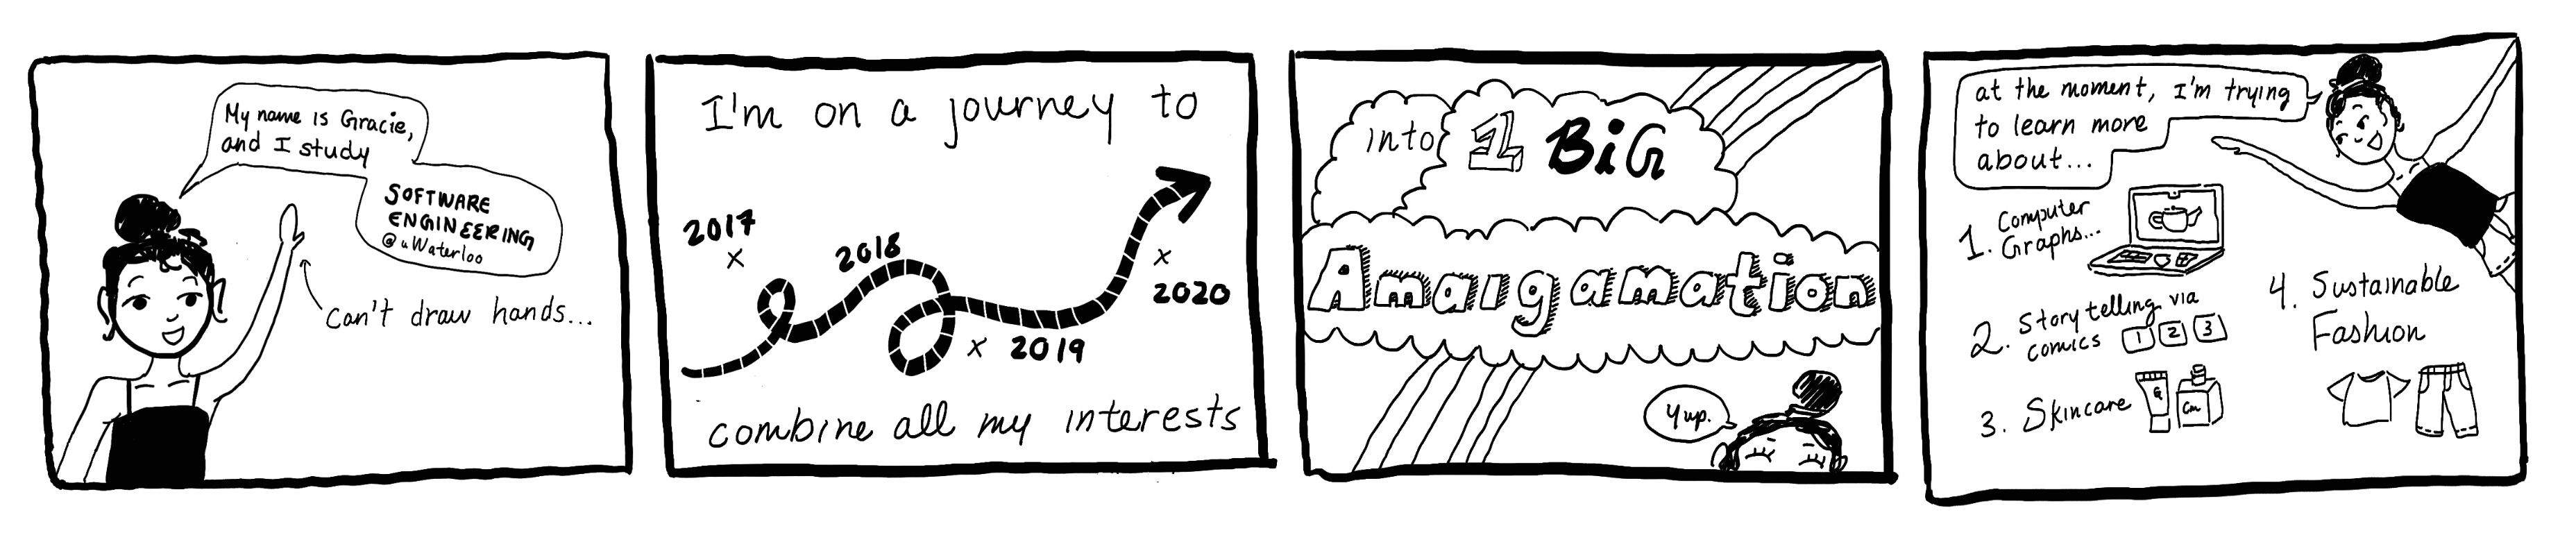 My name is Gracie,
and I study
SOFTWARE
ENGINEERING
@uWaterloo
can't draw hands...
I'm on a journey to
2017
x
2018
x
2019
x
2020
combine all my interests
into 1 BiG
Amalgamation
Yup.
at the moment, I'm trying
to learn more
about...
1. Computer
Graphs...
2. Storytelling via
comics 1 2 3
3. Skincare
G
Cm
4. Sustainable
Fashion